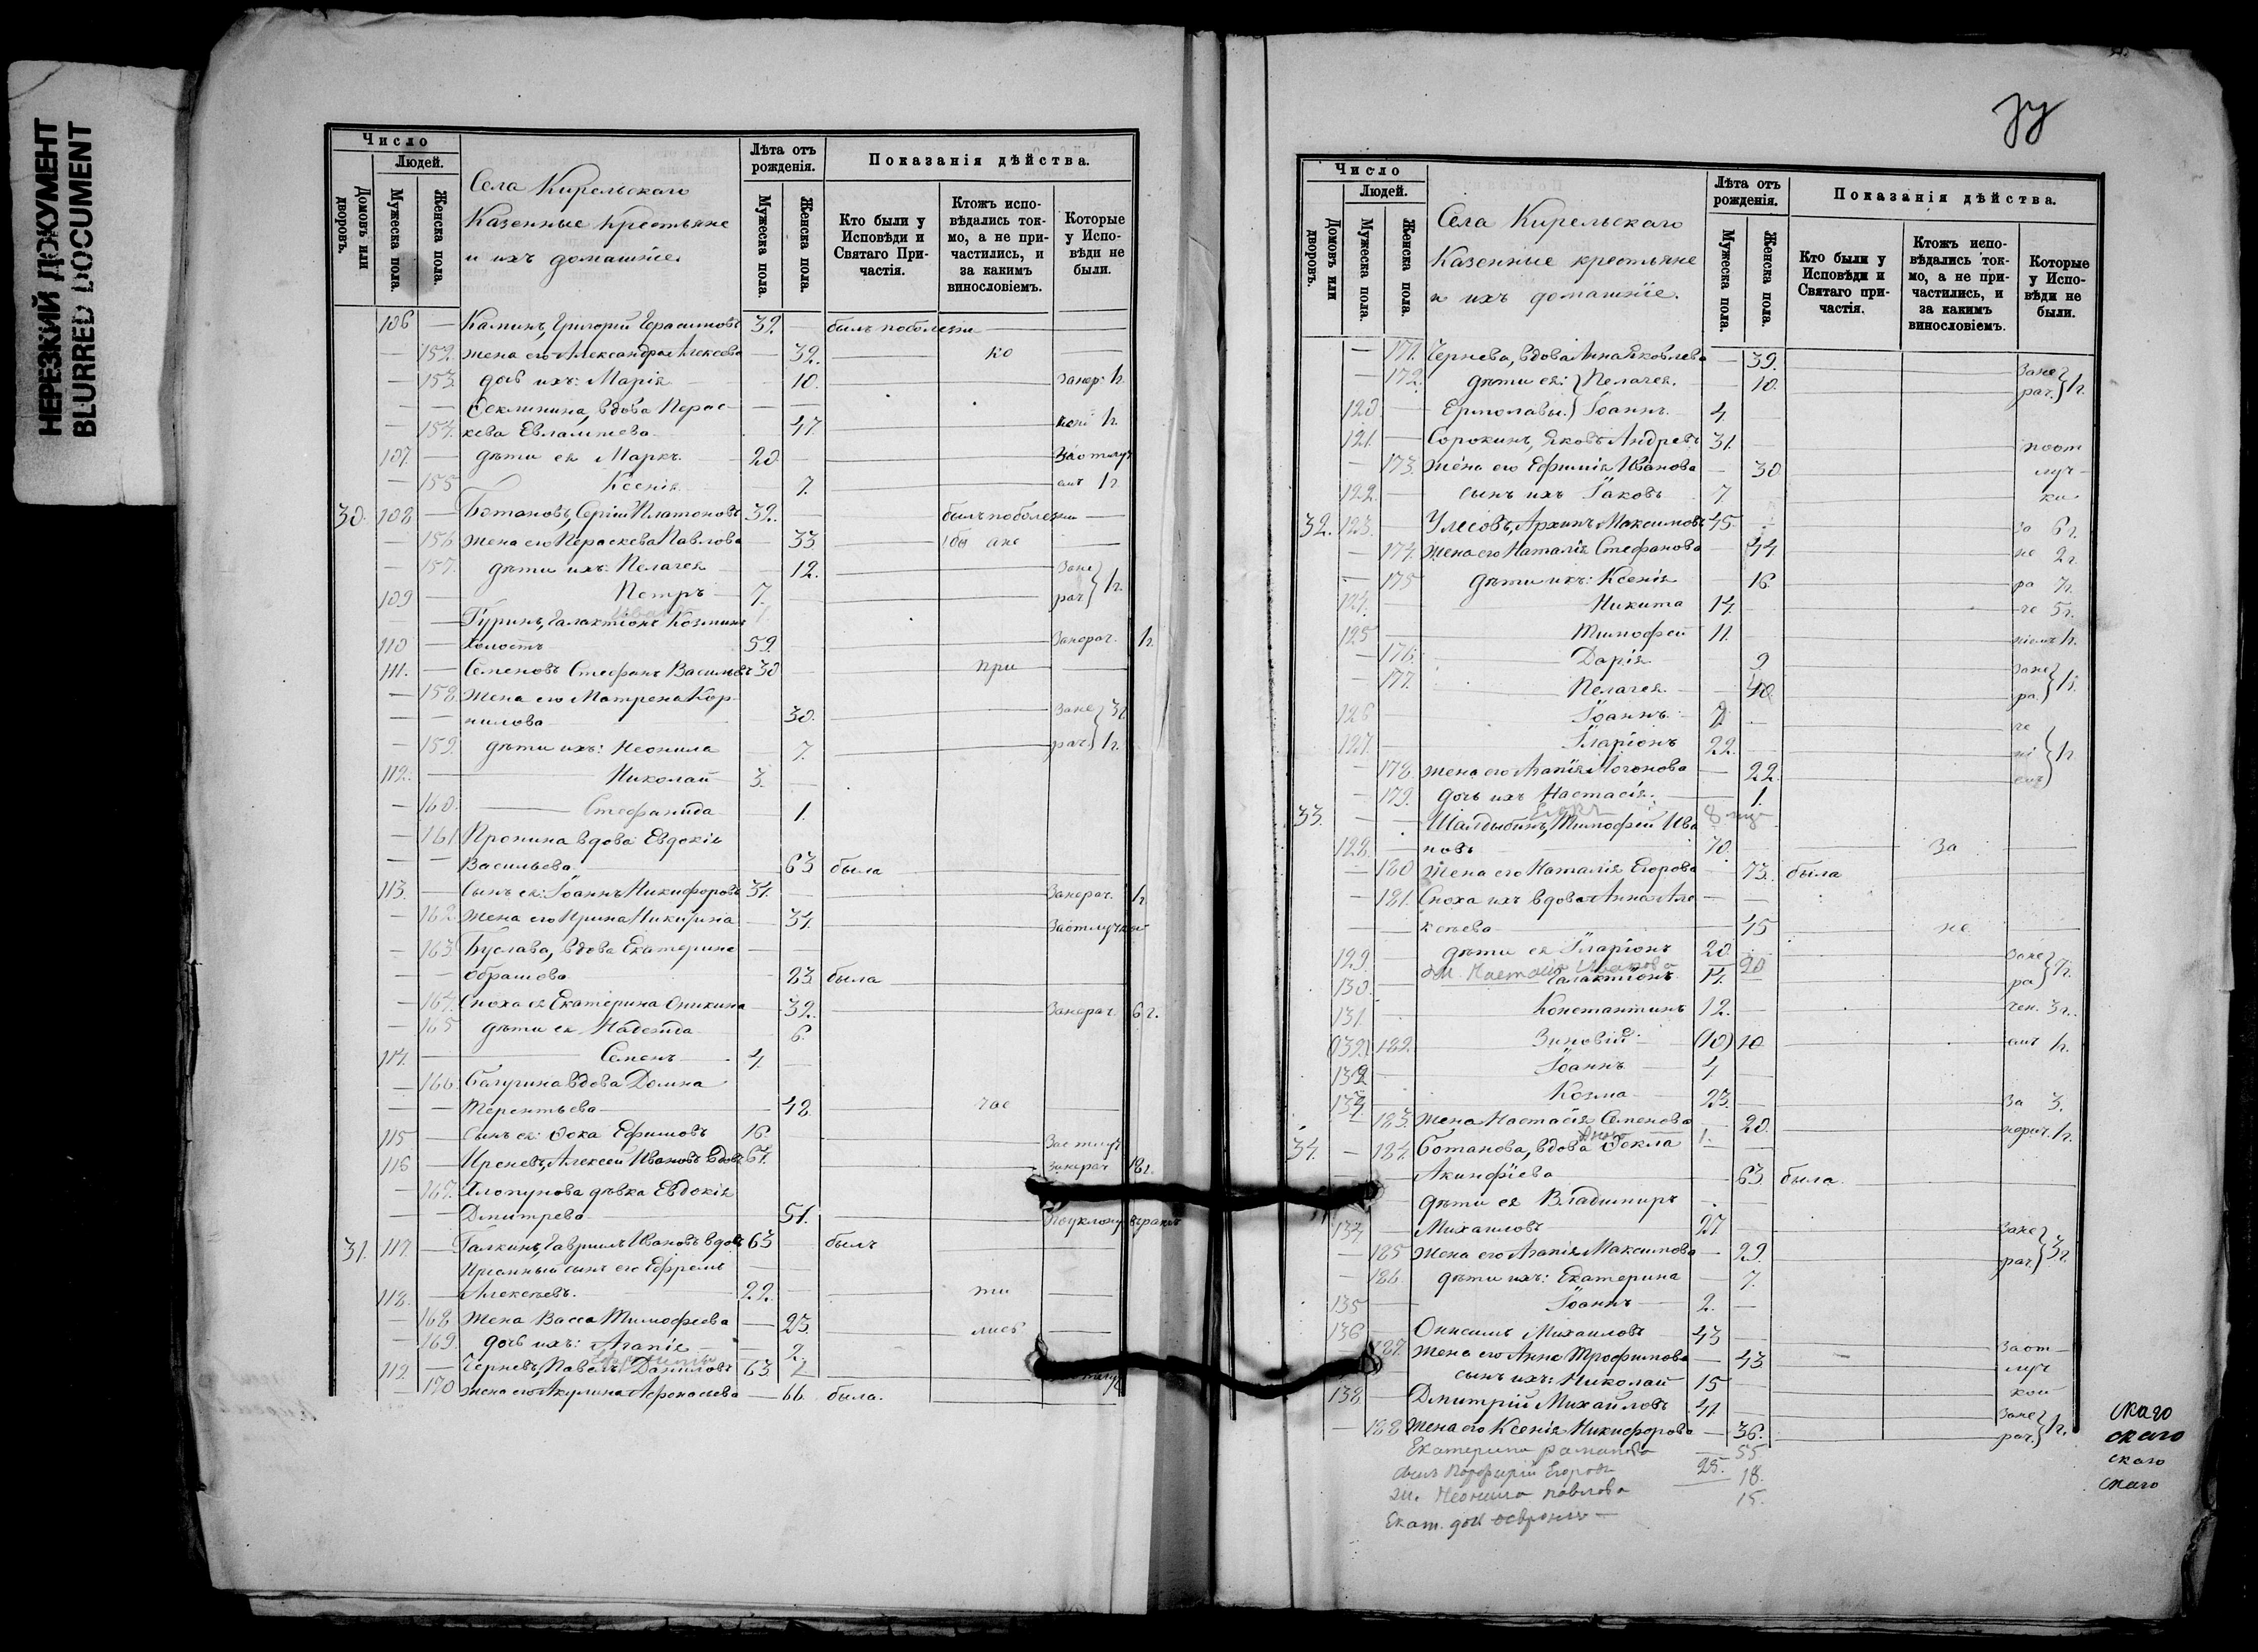 НЕРЕЗКИЙ ДОКУМЕНТ
BLURRED DOCUMENT
Число
Людей.
Домовъ или дворовъ.
Мужеска пола.
Женска пола.
Села Кирельскаго
Казенные крестьяне
и ихъ домашніе.
Лѣта отъ рожденія.
Мужеска пола.
Женска пола.
Показанія дѣйства.
Кто были у Исповѣди и Святаго Причастія.
Ктожъ исповѣдались токмо, а не причастились, и за какимъ винословіемъ.
Которые у Исповѣди не были.
106 — Григорій Герасимовъ 32. — былъ по болезни
— 152. жена его Александра Алексева — 32. ко
— 153. дочь ихъ: Марія — 10. 1 г.
вдова Перас-
— 154. кева Евлампіева 47. 1 г.
107. — дѣти ея Маркъ 20
— 155 Ксенія 7. 1 г.
30. 108 — Ботановъ, Сергій Платоновъ 32. — былъ по болезни
— 156. жена его Пераскева Павлова — 33
— 157. дѣти ихъ: Пелагея 12. Зане
109 — Петръ 7. рач. } 1 г.
— Гуринъ, Галактіонъ Козминъ
110 — холостъ 59. Занерач. 1 г.
111. — Семеновъ Стефанъ Васильевъ 30 при
— 158. жена его Матрена Кор-
— — нилова 30. Зане 3 г.
— 159. дѣти ихъ: Неонила 7. рач. } 1 г.
112. — Николай 3. —
— 160. Стефанида 1.
— 161 Пронина вдова Евдокія
— — Васильева 63 была
113. — Сынъ ея: Іоаннъ Никифоровъ 34. Занерач. 1 г.
— 162. жена его Ирина — 34. За отлучкой
— 163. Буслава, вдова Екатерина
— — 83. была
— 164. Сноха ея Екатерина Аникина — 32. Занерач. 6 г.
— 165 дѣти ея Надежда 6.
114. — Семенъ 4.
— 166. вдова Домна
— — Терентьева 48. час
115 — Сынъ ея: Ѳока Ефимовъ 16.
116 — Алексей Ивановъ вдовъ 67. Занерач 18 г.
— 167. Хлопунова дѣвка Евдокія
— — Дмитрева 51.
31. 117. — Галкинъ, Гавріилъ Ивановъ вдовъ 63 былъ
Пріемный сынъ его Ефремъ
118. — Алексѣевъ. 22. — ти
— 168. жена Васса Тимофеева — 23. лись
— 169. дочь ихъ: Агапія 2.
119. — Черневъ, Павелъ Даниловъ 63.
— 170 жена его Акулина Афонасьева — 66. была.
Число
Людей.
Домовъ или дворовъ.
Мужеска пола.
Женска пола.
Села Кирельскаго
Казенные крестьяне
и ихъ домашніе.
Лѣта отъ рожденія.
Мужеска пола.
Женска пола.
Показанія дѣйства.
Кто были у Исповѣди и Святаго причастія.
Ктожъ исповѣдались токмо, а не причастились, и за какимъ винословіемъ.
Которые у Исповѣди не были.
— 171. Чернева, вдова Анна Яковлева — 39. Зане
— 172. дѣти ея: Пелагея. 10. рач. } 1 г.
120 — Ермолавы. Іоаннъ. 4.
121. — Сорокинъ, Яковъ Андревъ 31. по от
— 173. жена его Ефимія Иванова — 30. луч-
122. — сынъ ихъ Іаковъ 7 ки
32. 123. — Улесовъ, Архипъ Максимовъ 45. за 6 г.
— 174. жена его Наталія Стефанова — 44. не 2 г.
— 175 дѣти ихъ: Ксенія 16. ра 7 г.
124. — Никита 14. че 5 г.
125 — Тимофей 11. ніемъ 1 г.
— 176. Дарія 9 Зане
— 177. Пелагея. ра. } 1 г.
126 — Іоаннъ. че
127. — Иларіонъ 22. ні } 1 г.
— 178. жена его Агапія — 22. емъ
— 179. дочь ихъ Настасія. 1.
33. — — Шалдыбинъ, Тимофей Ива
128. — новъ 70. За
— 180 жена его Наталія Егорова 73. была
— 181. Сноха ихъ вдова Анна Але
— — ксѣева 45 не
129. — дѣти ея Иларіонъ 20. Зане
ж. Настасія Иванова 20
130. — Галактіонъ 14. ра
131 Константинъ 12. чен. 3 г.
(132.) 182. Зиновій (10) 10 емъ 1 г.
132 — Іоаннъ 4
Козма 23. За 3.
— 183. жена Настасія Семенова — 20. нерач. 1 г.
34. — 184. Ботанова, вдова Ѳекла
Акинфіева 63 была.
дѣти ея Владимиръ
134 Михаиловъ 27. Зане
— 185 жена его Агапія Максимова — 29. рач. } 3 г.
— 186. дѣти ихъ: Екатерина — 7.
135 — Іоаннъ 2. —
136 Онисимъ Михаиловъ 43 За от-
187. жена его Анна Трофимова — 43. луч
сынъ ихъ: Николай 15 кой
138. Дмитрій Михайловъ 41 Зане
— 188 жена его Ксенія Никифорова — 36. рач. } 1 г.
Екатерина — 55
Порфирій Егоровъ 25. 18.
ж. Неонила Павлова 15.
Екат. доч
скаго
скаго
скаго
скаго